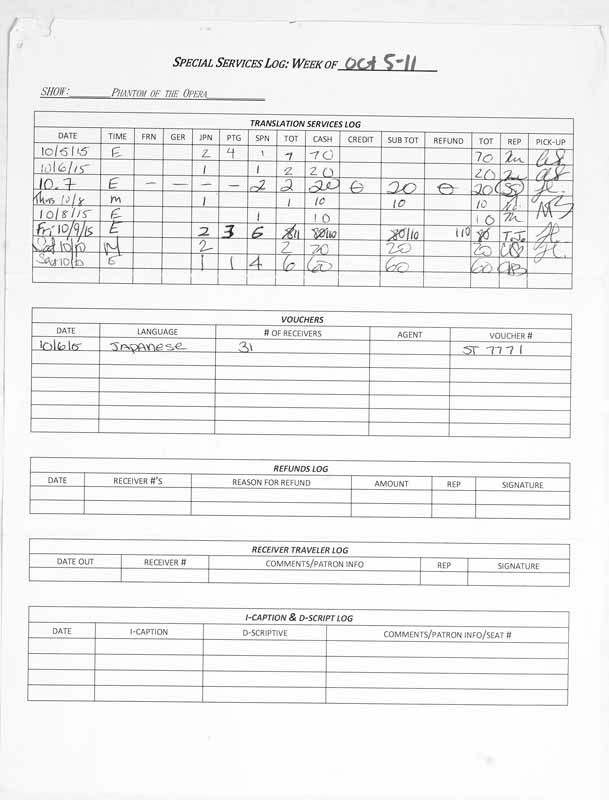 SPECIAL SERVICES LOG: WEEK OF Oct 5-11
SHOW: PHANTOM OF THE OPERA
TRANSLATION SERVICES LOG
DATE TIME FRN GER JPN PTG SPN TOT CASH CREDIT SUB TOT REFUND TOT REP PICK-UP
10/5/15 E 2 4 1 7 70 70
10/6/15 1 1 2 20 20
10.7 E - - - - 2 2 20 0 20 0 20
Thurs 10/8 m 1 1 10 10 10
10/8/15 E 1 10 10
Fri 10/9/15 E 2 3 6 11 110 110 110 T.J.
Sat 10/10 M 2 2 20 20 20
Sat 10/10 E 1 1 4 6 60 60 60
VOUCHERS
DATE LANGUAGE # OF RECEIVERS AGENT VOUCHER #
10/6/15 JAPANESE 31 ST 7771
REFUNDS LOG
DATE RECEIVER #'S REASON FOR REFUND AMOUNT REP SIGNATURE
RECEIVER TRAVELER LOG
DATE OUT RECEIVER # COMMENTS/PATRON INFO REP SIGNATURE
I-CAPTION & D-SCRIPT LOG
DATE I-CAPTION D-SCRIPTIVE COMMENTS/PATRON INFO/SEAT #